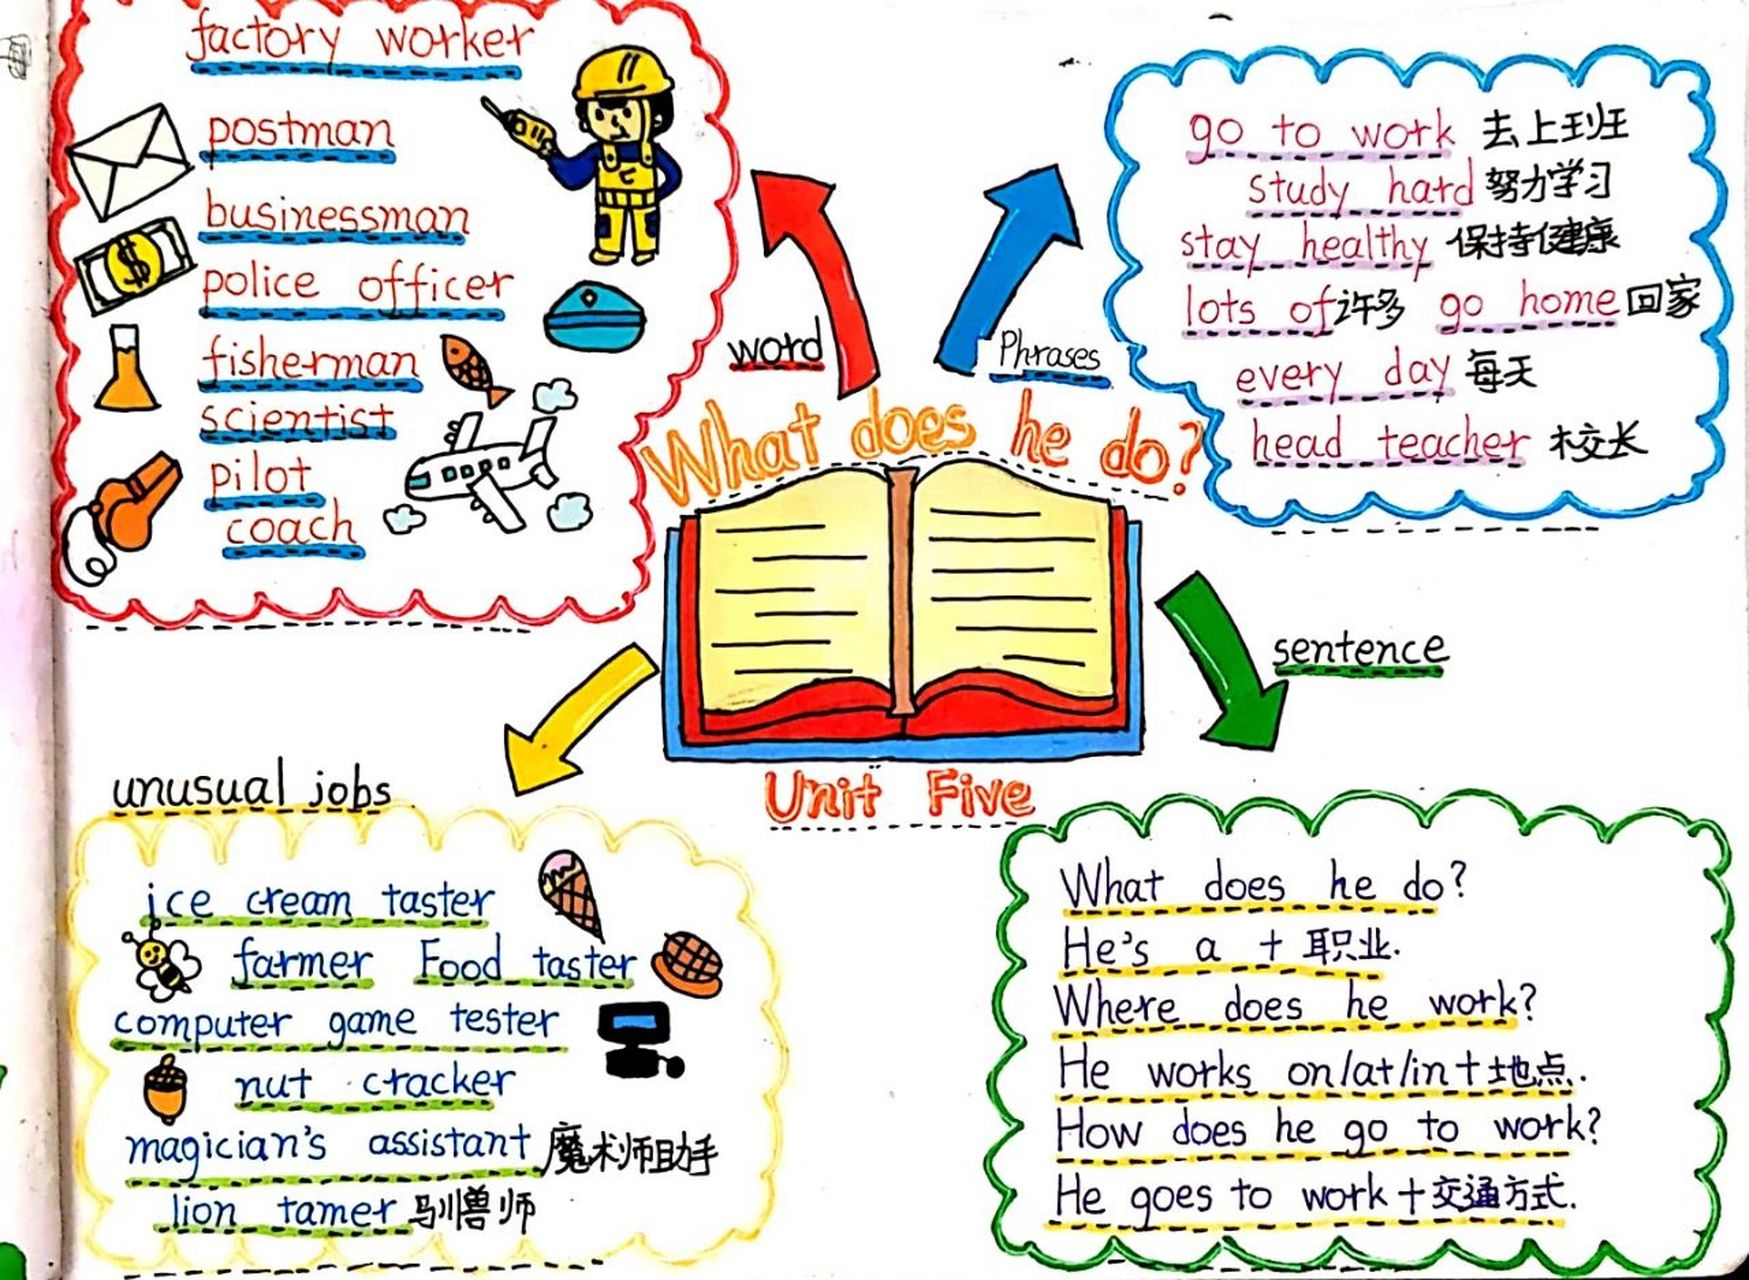 factory worker
postman
businessman
police officer
fisherman
scientist
pilot
coach
word
Phrases
go to work 去上班
study hard 努力学习
stay healthy 保持健康
lots of 许多 go home 回家
every day 每天
head teacher 校长
What does he do?
Unit Five
sentence
What does he do?
He's a + 职业.
Where does he work?
He works on/at/in+地点.
How does he go to work?
He goes to work + 交通方式.
unusual jobs
ice cream taster
farmer Food taster
computer game tester
nut cracker
magician's assistant 魔术师助手
lion tamer 驯兽师